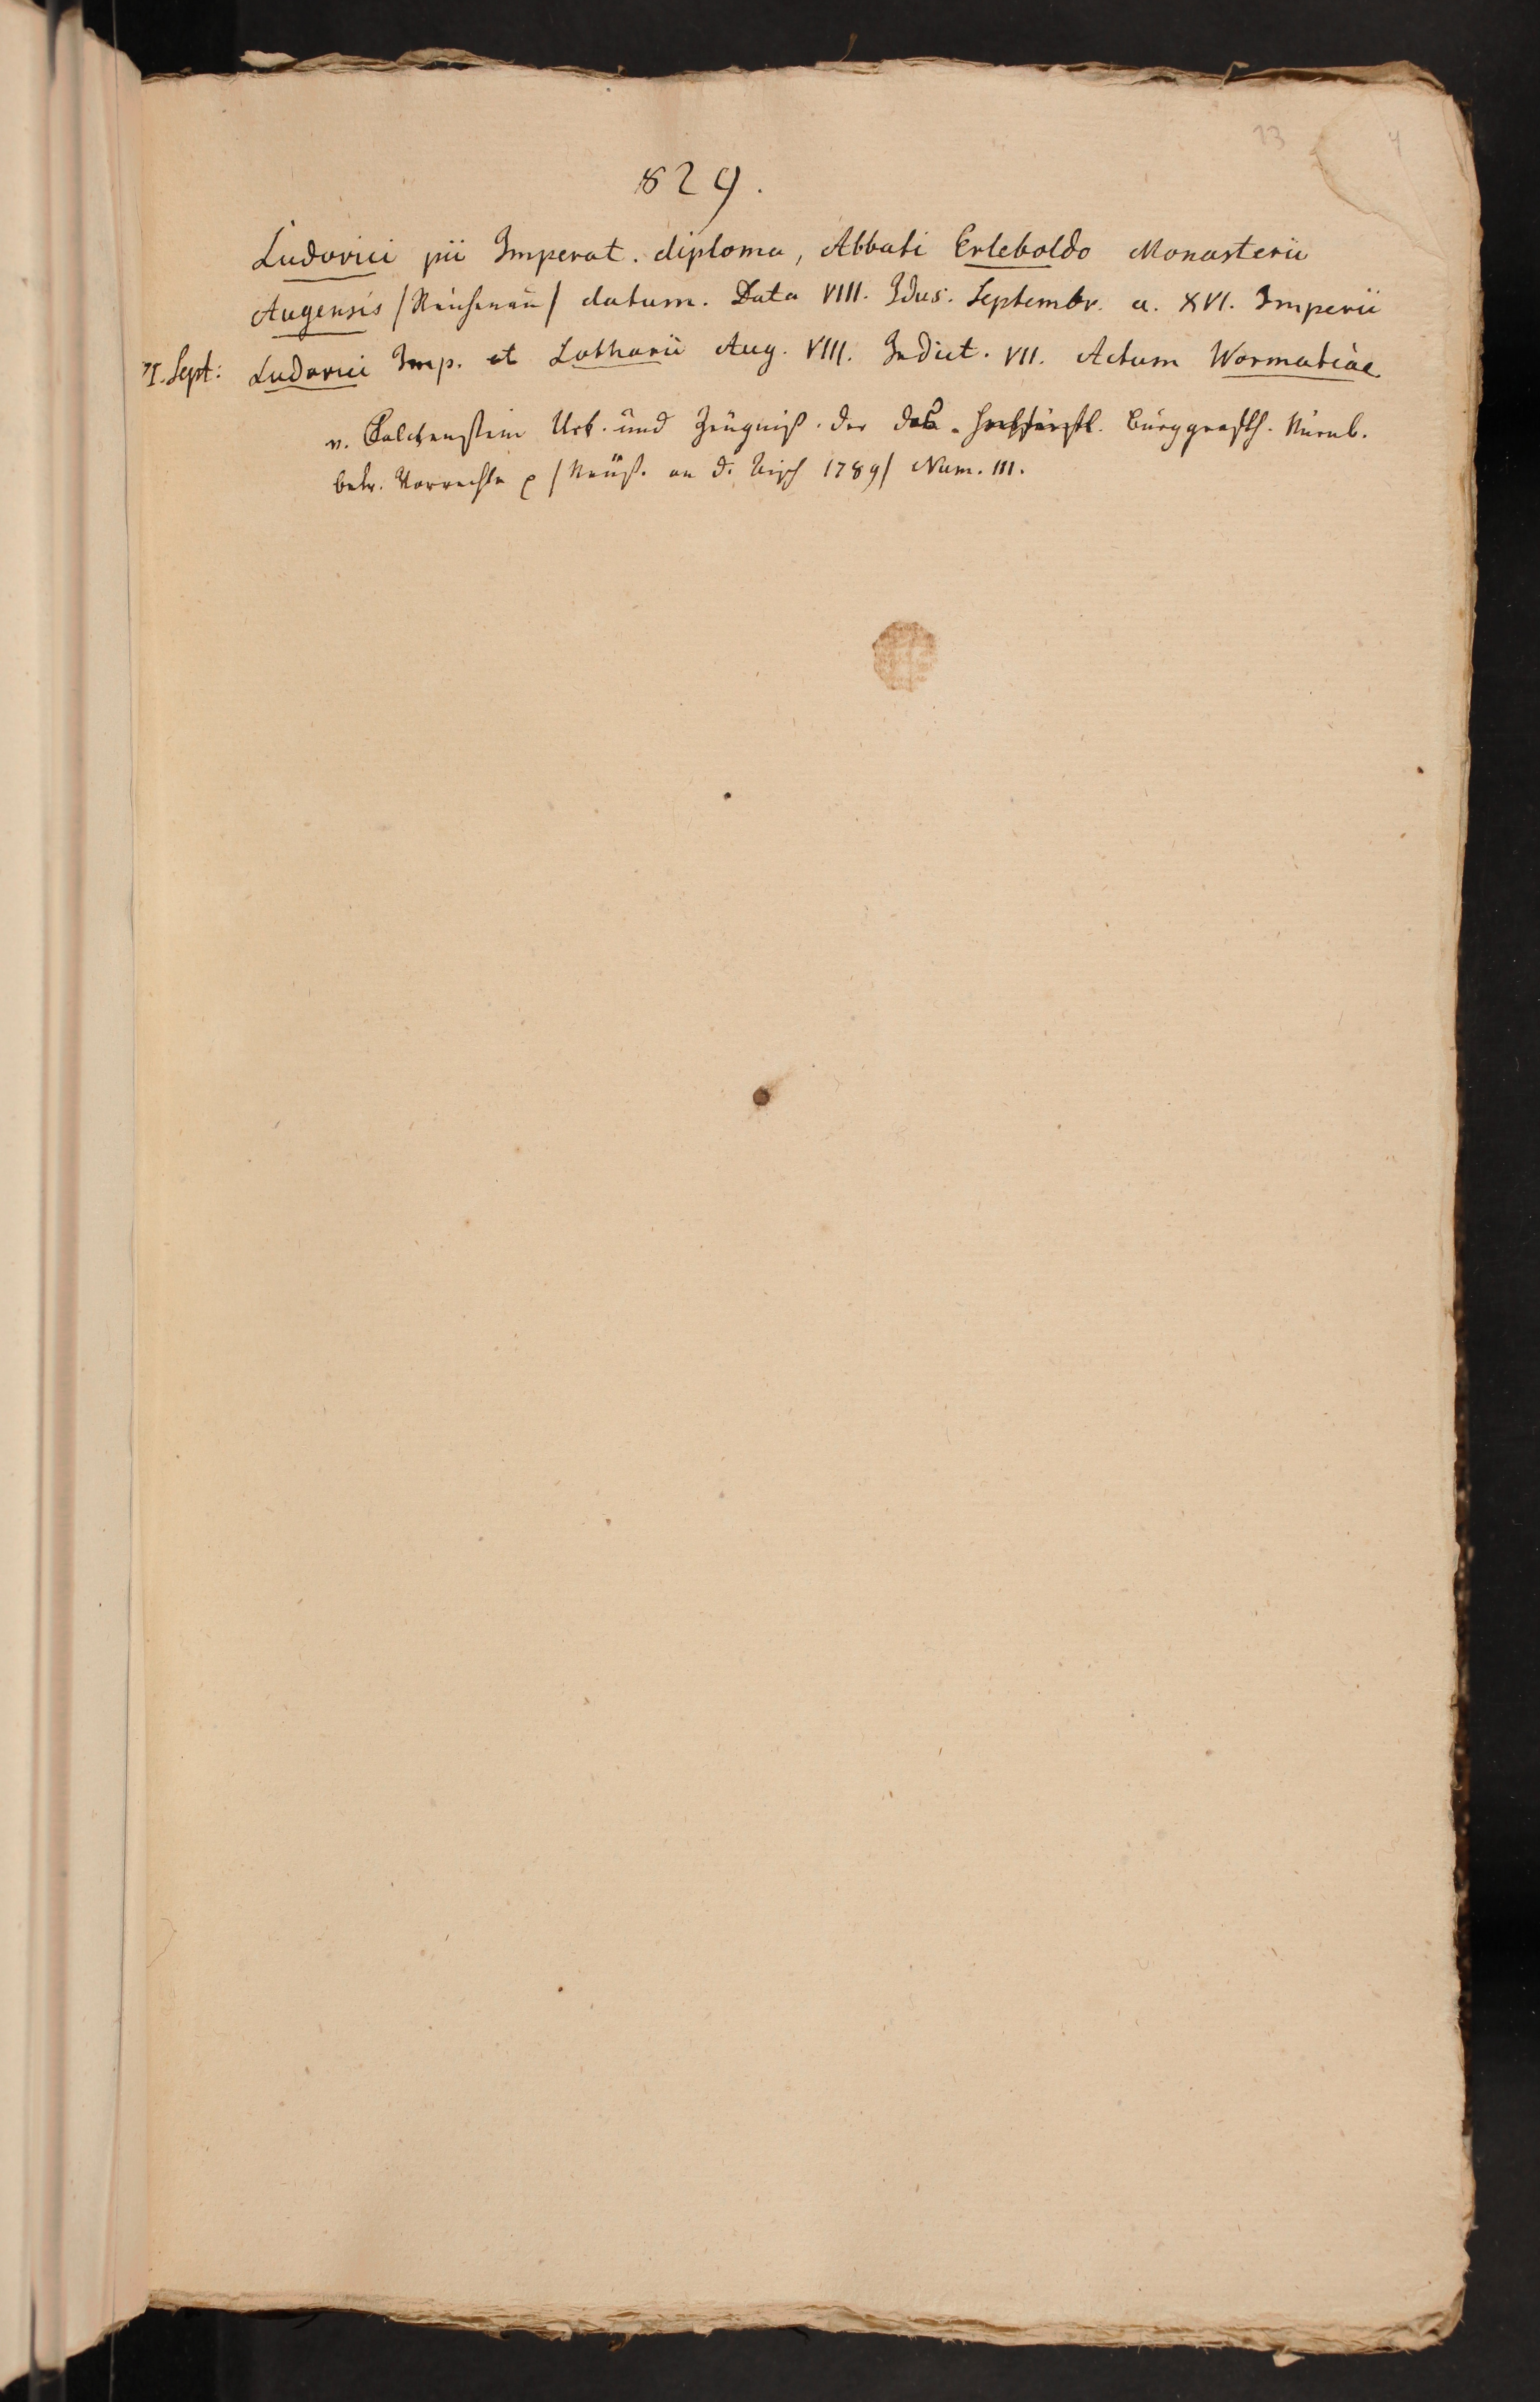 13
4
829.
Ludovici pii Imperat. diploma, Abbati Erleboldo Monasterii
Augensis /Reichenau/ datum. Data VIII. Idus. Septembr. a. XVI. Imperii
Sept: Ludovici Imp. et Lotharii Aug. VIII. Indict. VII. Actum Wormatiae
v. Falckenstein Urk. und Zeugniß. der Burggrafth. Nürnb.
betr. Vorrechte /Neust. an d. Aisch 1789/ Num. III.